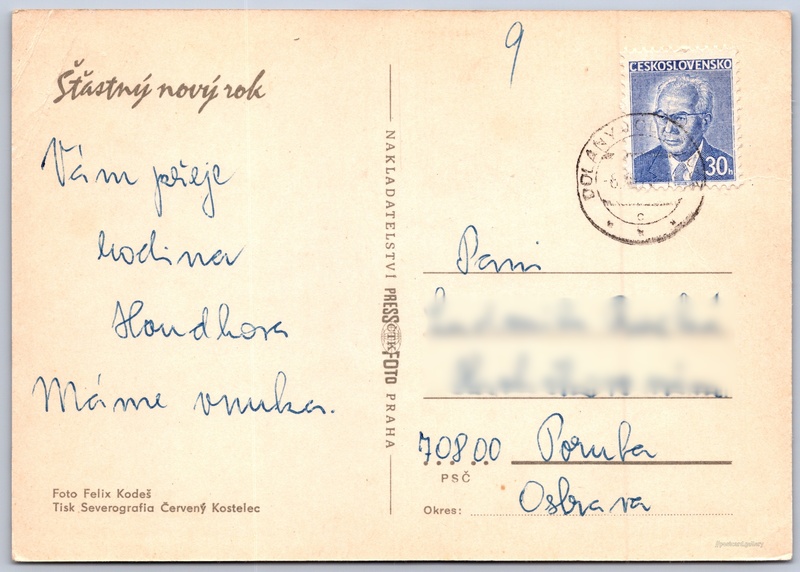 9
Šťastný nový rok
Vám přeje
rodina
Houdkova
Máme vnuka.
Foto Felix Kodeš
Tisk Severografia Červený Kostelec
NAKLADATELSTVÍ PRESSFOTO PRAHA
ČTK
ČESKOSLOVENSKO
30h
DOLANY
Paní
70800 Poruba
PSČ
Ostrava
Okres: